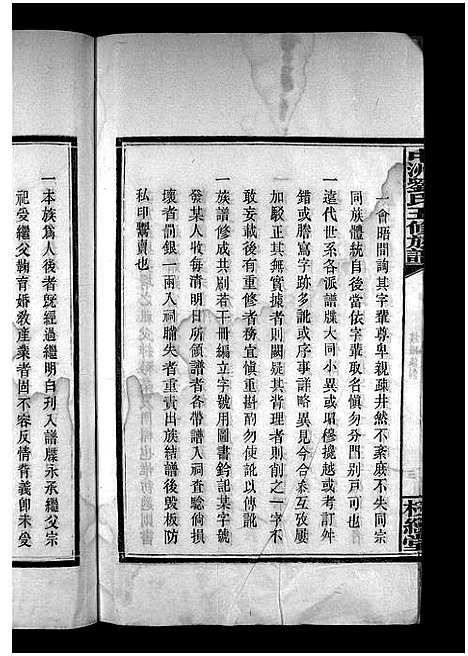 中派劉氏五修族譜
一會晤間詢其字輩尊卑親疎井然不紊庶不失同宗
同族體統自後當依字輩取名愼勿分門别戸可也
一遠代世系各派譜牒大同小異或眉穆攙越或考訂舛
錯或謄寫字跡多訛或序事詳略異見今合叅互攷屢
加駁正其無實據者則闕疑其背理者則削之一字不
敢妄載後有重修者務宜愼重斟酌勿使訛以傳訛
一族譜修成共剔若干冊編立字號用圖書鈐記某字號
發某人收每清明日所領譜者各帶譜入祠查騐倘損
壞者罰銀一兩入祠腊失者重責出族結譜後毀板防
私印鬻賣也
一本族爲人後者旣經過繼明白刋入譜牒永承繼父宗
祀受繼父鞠育婚敎産業者固不容反情背義卽未受